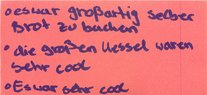 • es war großartig selber
Brot zu backen
• die großen Kessel waren
sehr cool
• Es war sehr cool